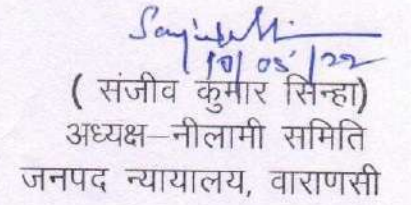 10/05/22
( संजीव कुमार सिन्हा)
अध्यक्ष–नीलामी समिति
जनपद न्यायालय, वाराणसी